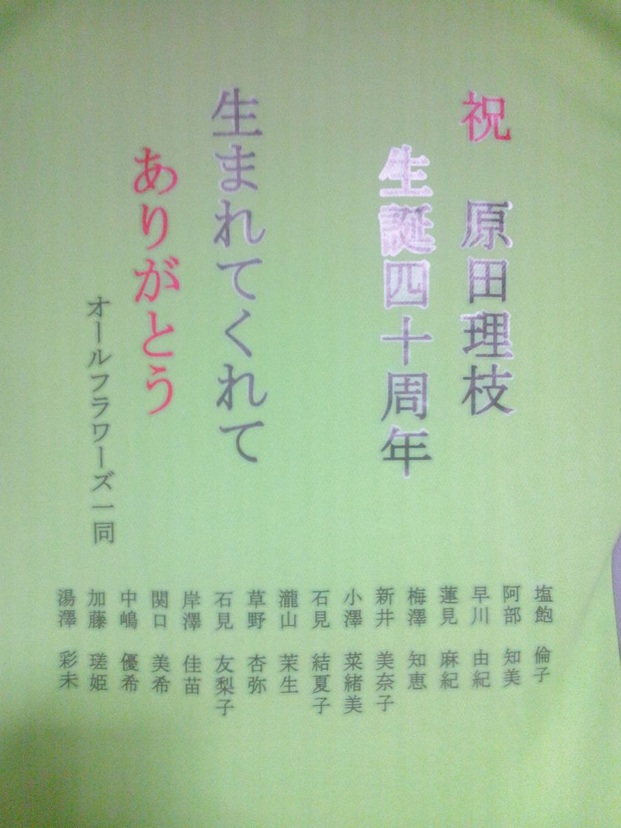 祝 原田理枝
生誕四十周年
生まれてくれて
ありがとう
オールフラワーズ一同
塩飽 倫子
阿部 知美
早川 由紀
蓮見 麻紀
梅澤 知恵
新井 美奈子
小澤 菜緒美
石見 結夏子
瀧山 茉生
草野 杏弥
石見 友梨子
岸澤 佳苗
関口 美希
中嶋 優希
加藤 瑳姫
湯澤 彩未